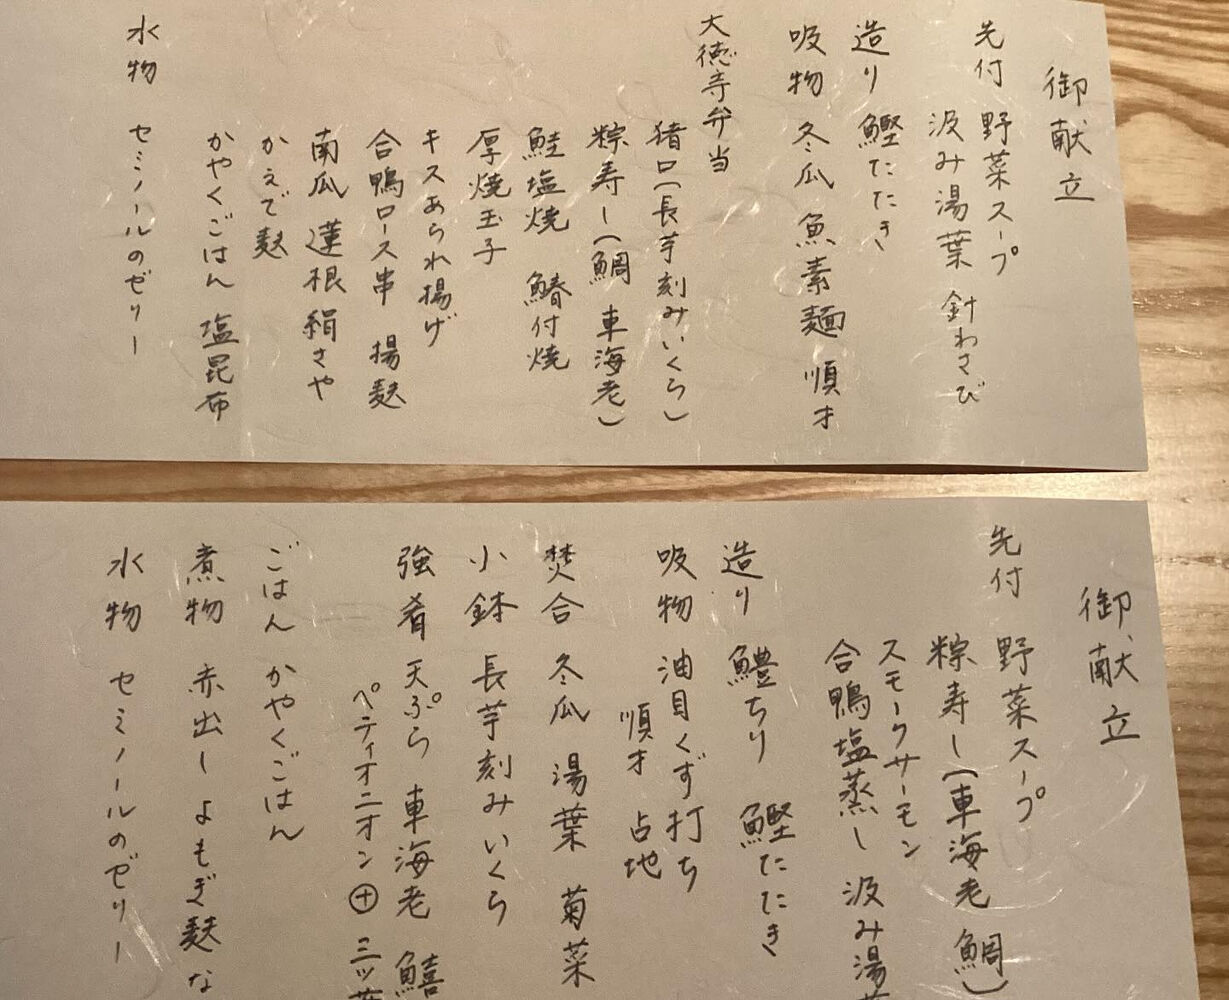 御献立
先付 野菜スープ
汲み湯葉 針わさび
造り 鰹たたき
吸物 冬瓜 魚素麺 順才
大徳寺弁当
猪口(長芋刻みいくら)
粽寿し(鯛 車海老)
鮭塩焼 鰆付焼
厚焼玉子
キスあられ揚げ
合鴨ロース串 揚麩
南瓜 蓮根 絹さや
かえで麩
かやくごはん 塩昆布
水物 セミノールのゼリー
御献立
先付 野菜スープ
粽寿し(車海老 鯛)
スモークサーモン
合鴨塩蒸し 汲み湯葉
造り 鱧ちり 鰹たたき
吸物 油目くず打ち
順才 占地
焚合 冬瓜 湯葉 菊菜
小鉢 長芋刻みいくら
強肴 天ぷら 車海老 鱚
ペティオニオン ㊉ 三ッ葉
ごはん かやくごはん
煮物 赤出し よもぎ麩 な
水物 セミノールのゼリー